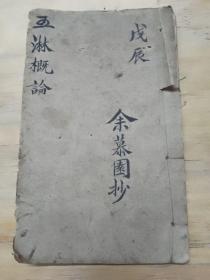 戊辰
余慕園抄
五淋概論